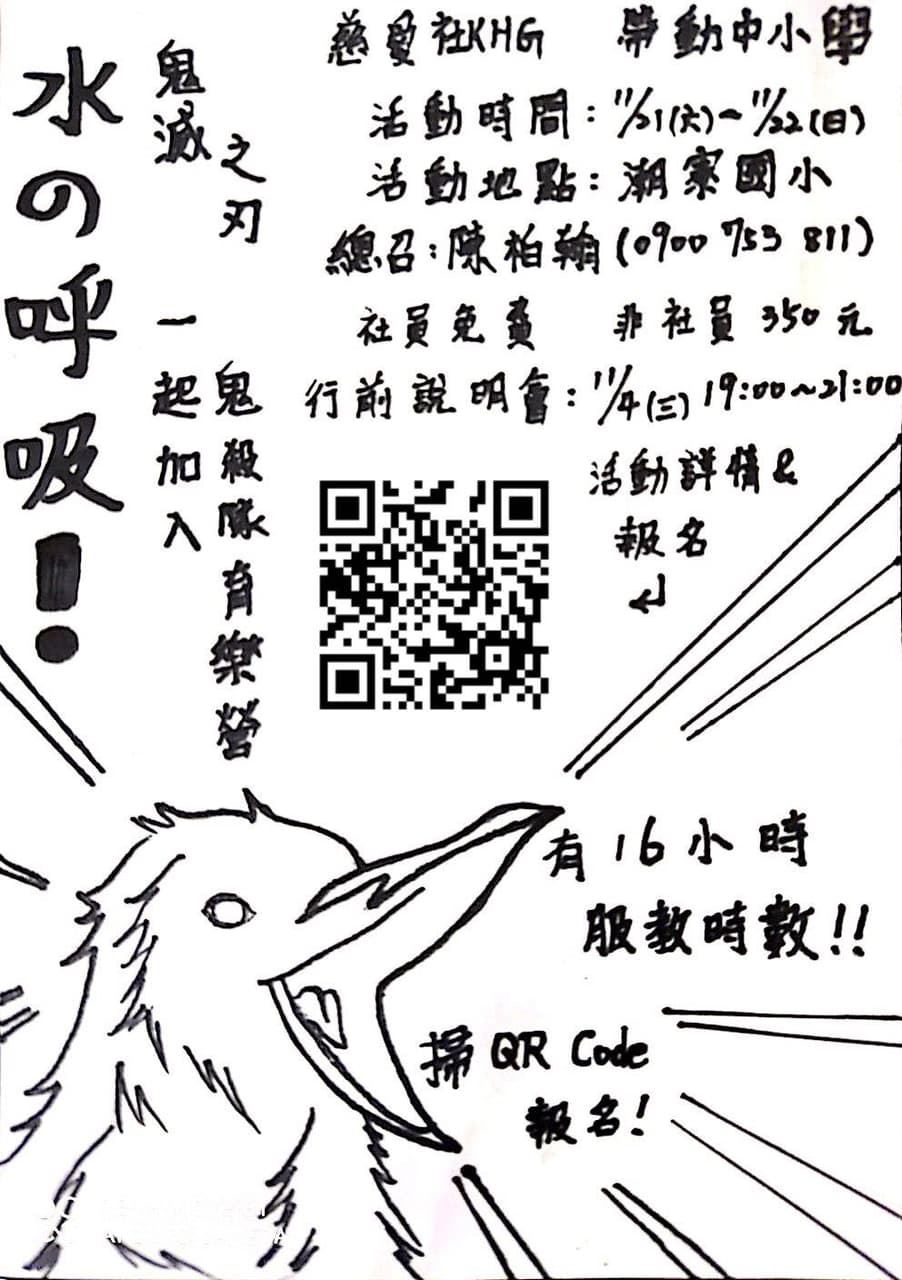 水の呼吸！
鬼滅
之刃
一起加入
鬼殺隊育樂營
慈愛社KHG 帶動中小學
活動時間：11/21(六)~11/22(日)
活動地點：潮寮國小
總召：陳柏翰(0900 753 811)
社員免費 非社員350元
行前說明會：11/4(三) 19:00~21:00
活動詳情&
報名
↲
有16小時
服教時數!!
掃QR Code
報名!